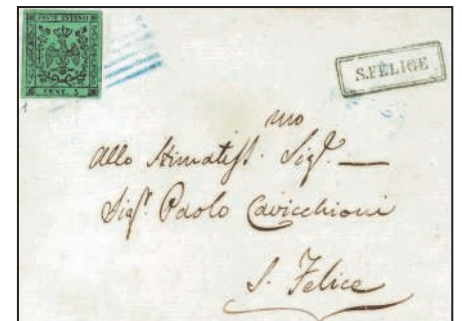 POSTE ESTENSI
CENT. 5
1
S.FELICE
Allo Stimatiss.mo Sigr.
Sigr. Paolo Cavicchioni
S. Felice